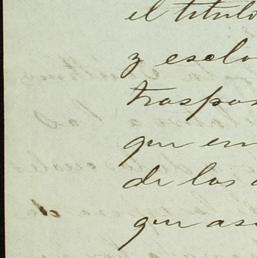 el título
y escla
traspas
que en
de los
que as